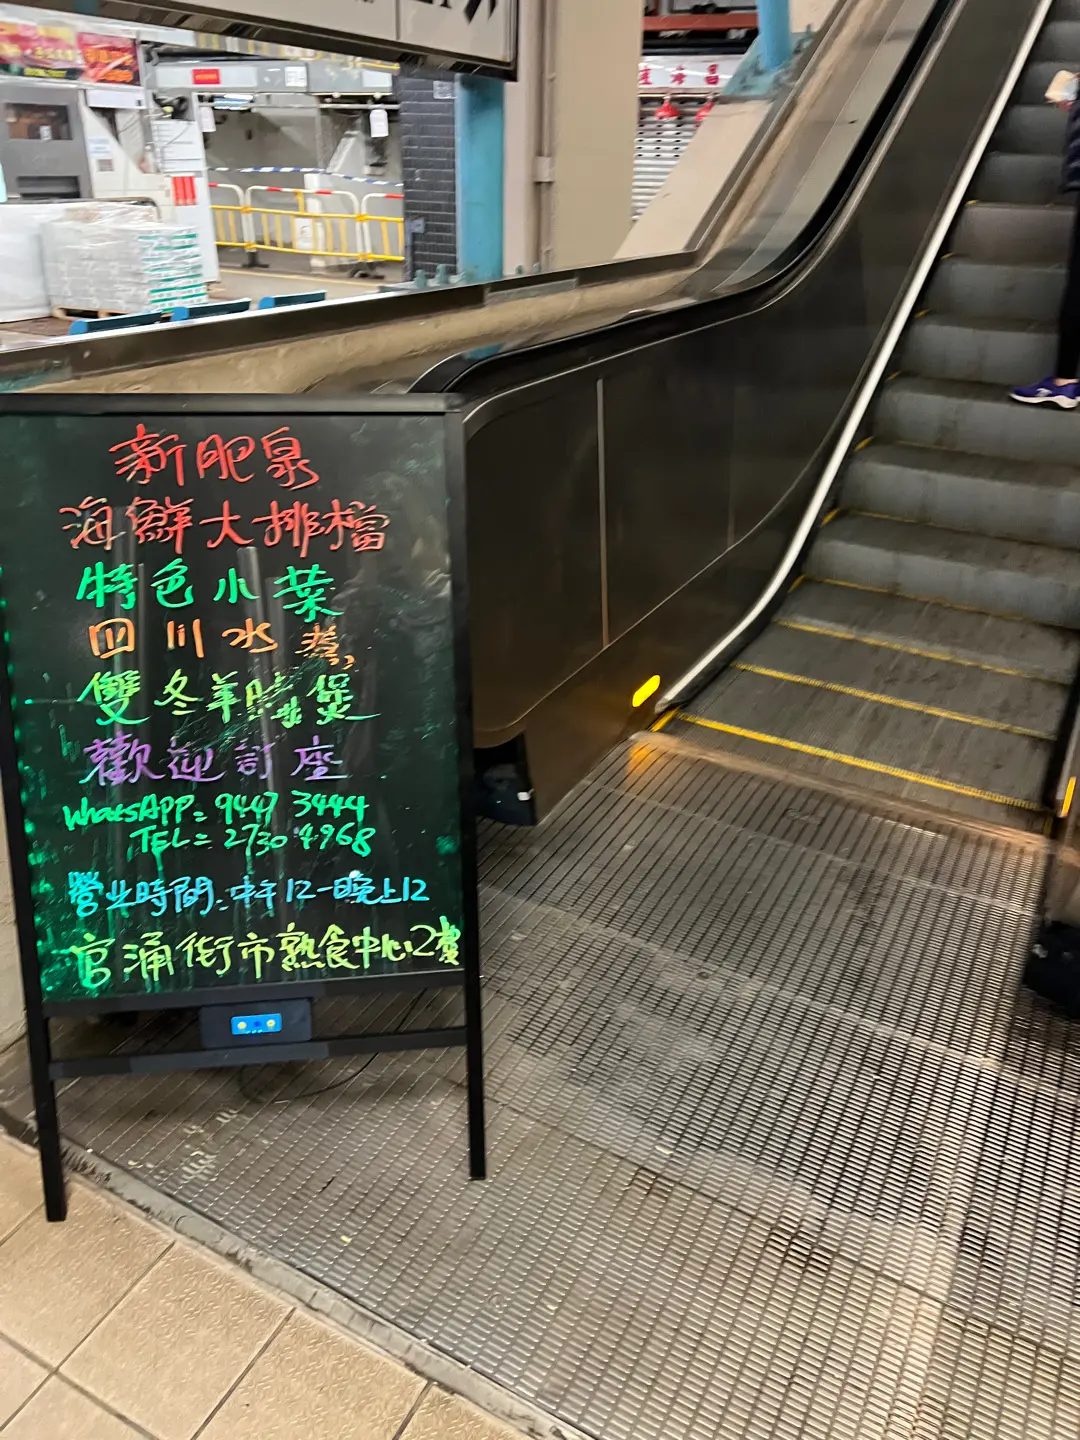 新肥泉
海鮮大排檔
特色小菜
四川水煮
雙冬羊腩煲
歡迎訂座
WhatsAPP: 9447 3444
TEL: 2730 4968
營业時間:中午12-晚上12
官涌街市熟食中心2樓